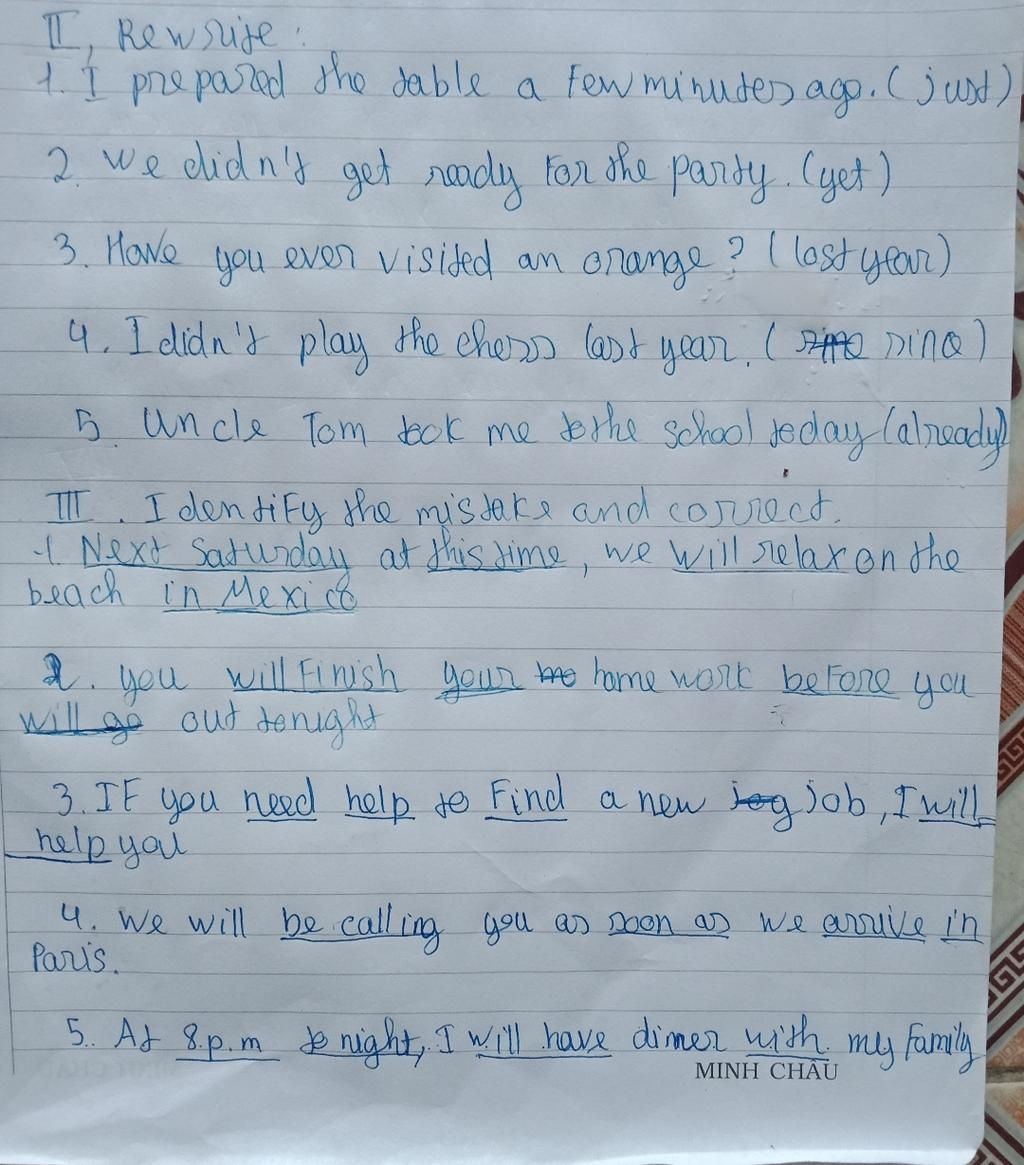 II, Rewrite:
1. I prepared the table a few minutes ago. (just)
2. We didn't get ready for the party. (yet)
3. Have you ever visited an orange? (last year)
4. I didn't play the chess last year. (since)
5. Uncle Tom took me to the school today (already)
III. Identify the mistake and correct.
1. Next Saturday at this time, we will relax on the
beach in Mexico
2. you will finish your home work before you
will go out tonight
3. If you need help to find a new job, I will
help you
4. We will be calling you as soon as we arrive in
Paris.
5. At 8.p.m tonight, I will have dinner with my family
MINH CHÂU